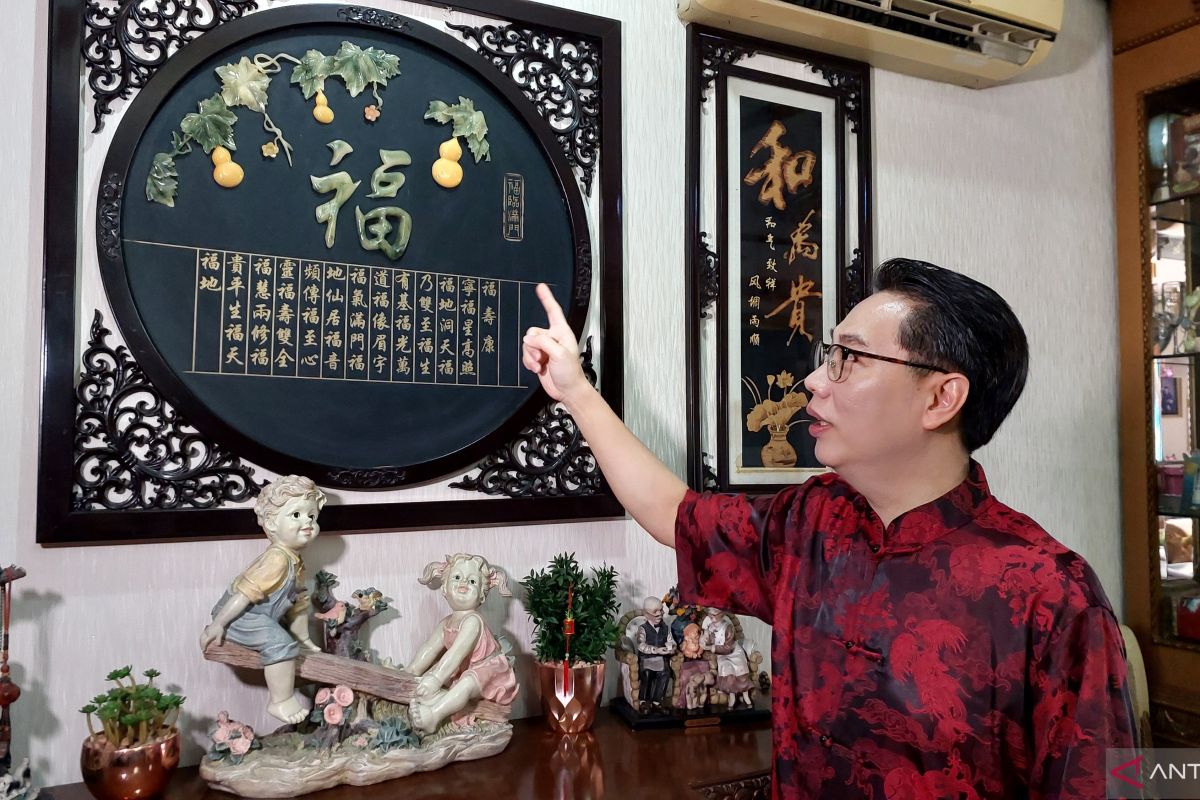 福
福臨滿門
福壽康
寧福星高照
福地洞天福
乃雙至福生
有基福光萬
道福像眉宇
福氣滿門福
地仙居福音
頻傳福至心
靈福壽雙全
福慧兩修福
貴平生福天
福地
和為貴
和气致祥
风調雨順
ANT